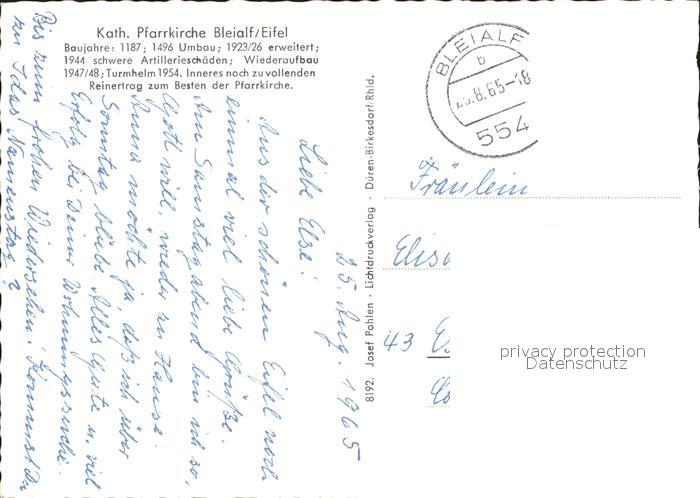 Kath. Pfarrkirche Bleialf/Eifel
Baujahre: 1187; 1496 Umbau; 1923/26 erweitert;
1944 schwere Artillerieschäden; Wiederaufbau
1947/48; Turmhelm 1954. Inneres noch zu vollenden
Reinertrag zum Besten der Pfarrkirche.
25. Aug. 1965
Liebe Else!
Aus der schönen Eifel noch
einmal viel liebe Grüße.
Am Samstagabend bin ich so,
Gott will, wieder zu Hause.
Anna möchte ja, daß ich über
Sonntag bliebe. Alles Gute u. viel
Erfolg bei Deiner Wohnungssuche.
Bis zum frohen Wiedersehen! Kommst Du
zu Idas Namenstag?
8192. Josef Pohlen · Lichtdruckverlag · Düren-Birkesdorf/Rhld.
BLEIALF
b
.8.65-18
554
Fräulein
Elis
43 Es
privacy protection
Datenschutz